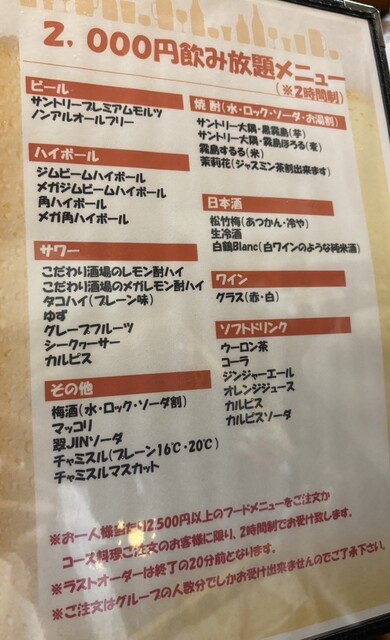 2,000円飲み放題メニュー
(※2時間制)
ビール
サントリープレミアムモルツ
ノンアルオールフリー
ハイボール
ジムビームハイボール
メガジムビームハイボール
角ハイボール
メガ角ハイボール
サワー
こだわり酒場のレモン酎ハイ
こだわり酒場のメガレモン酎ハイ
タコハイ(プレーン味)
ゆず
グレープフルーツ
シークヮーサー
カルピス
その他
梅酒(水・ロック・ソーダ割)
マッコリ
翠JINソーダ
チャミスル(プレーン16℃・20℃)
チャミスルマスカット
焼酎(水・ロック・ソーダ・お湯割)
サントリー大隅・黒霧島(芋)
サントリー大隅・霧島ほろる(麦)
霧島するる(米)
茉莉花(ジャスミン茶割出来ます)
日本酒
松竹梅(あつかん・冷や)
生冷酒
白鶴Blanc(白ワインのような純米酒)
ワイン
グラス(赤・白)
ソフトドリンク
ウーロン茶
コーラ
ジンジャーエール
オレンジジュース
カルピス
カルピスソーダ
※お一人様当たり2,500円以上のフードメニューをご注文か
コース料理ご注文のお客様に限り、2時間制でお受け致します。
※ラストオーダーは終了の20分前となります。
※ご注文はグループの人数分でしかお受け出来ませんのでご了承下さい。